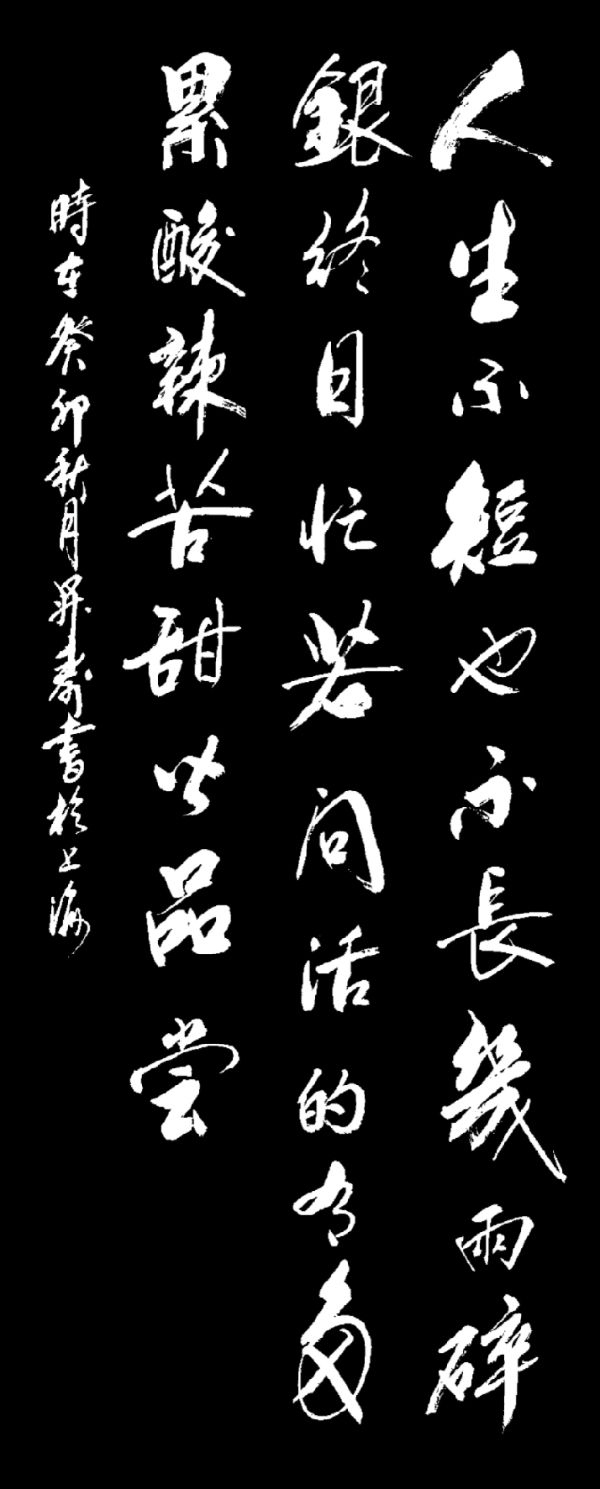 人生不短也不長幾兩碎
銀終日忙若問活的有多
累酸辣苦甜皆品尝
時在癸卯秋月昇壽書於上海